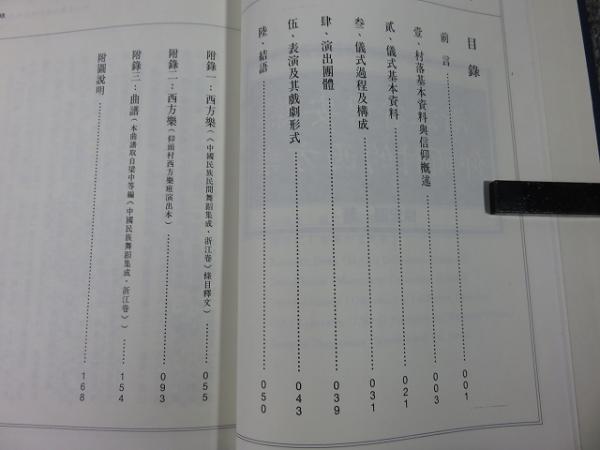 目錄
前言……001
壹、村落基本資料與信仰概述……003
貳、儀式基本資料……021
叁、儀式過程及構成……031
肆、演出團體……039
伍、表演及其戲劇形式……043
陸、結語……050
附錄一：西方樂（《中國民族民間舞蹈集成‧浙江卷》條目釋文）……055
附錄二：西方樂（仰頭村西方樂班演出本）……093
附錄三：曲譜（本曲譜取自梁中等編《中國民族舞蹈集成‧浙江卷》）……154
附圖說明……168